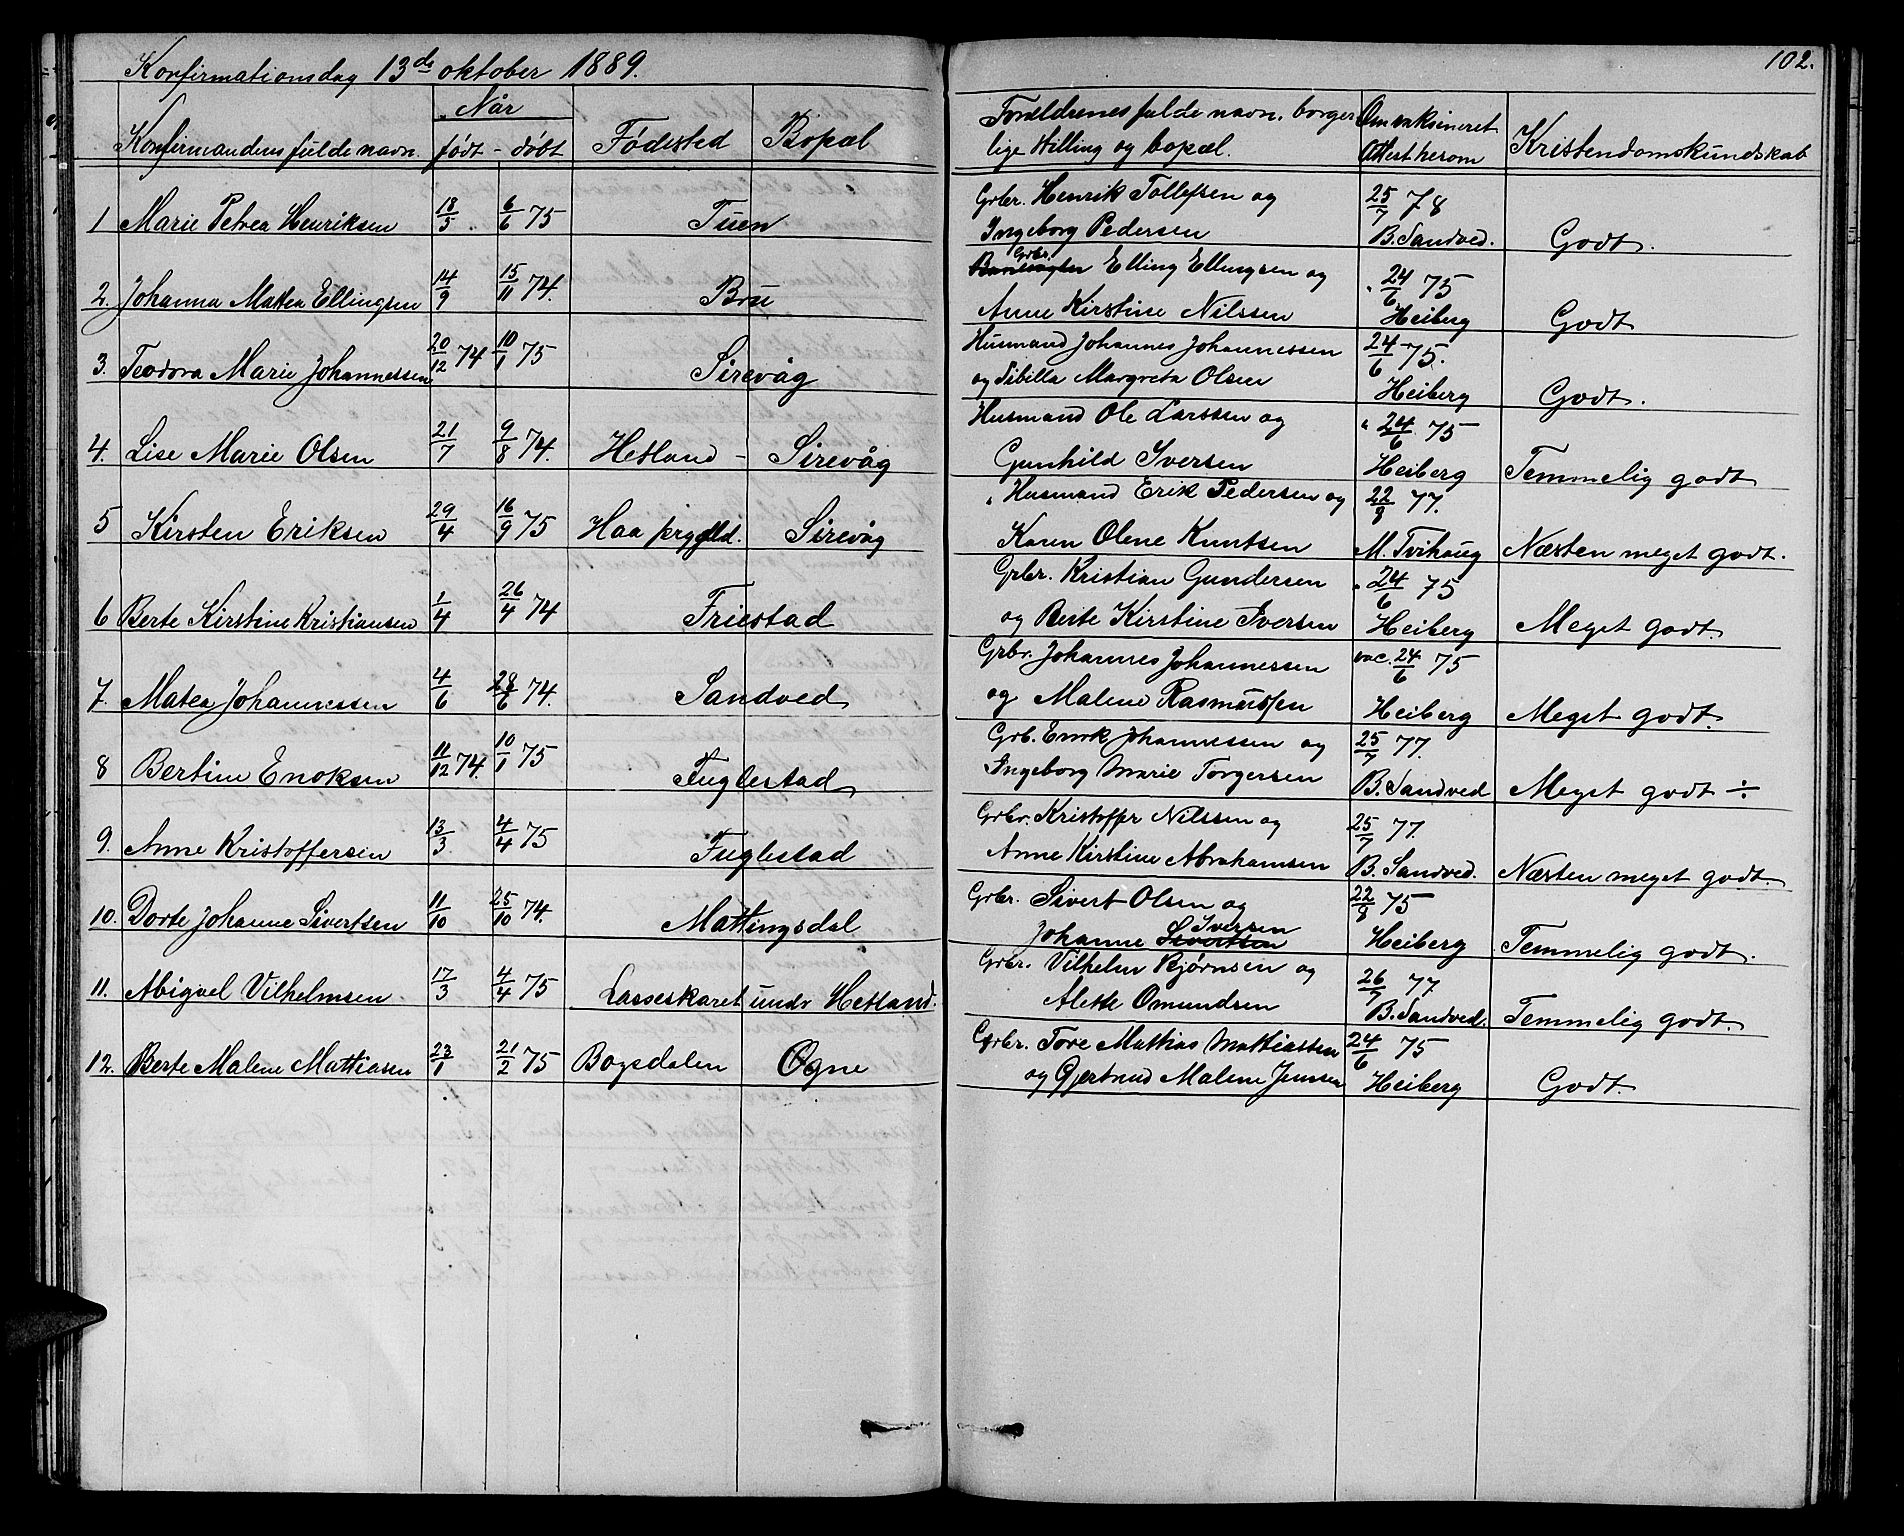 Konfirmationsdag 13de oktober 1889.
102.
Konfirmandens fulde navn. Når født - døbt Fødested Bopæl Forældrenes fulde navn, borger Omvaksineret Kristendomskundskab
lige stilling og bopæl. Attest herom
1 Marie Petrea Henriksen 18/5 6/6 75 Tuen Grbr. Henrik Tollefsen og 25/7 78
Ingeborg Pedersen B. Sandved. Godt.
2. Johanna Matea Ellingsen 14/9 15/11 74. Bru Banevogter Grbr. Elling Ellingsen og 24/6 75
Anne Kirstine Nilssen Heiberg Godt
3. Teodora Marie Johannessen 20/12 74 10/1 75 Sirevåg Husmand Johannes Johannessen 24/6 75.
og Sibilla Margreta Olsen Heiberg Godt.
4. Lise Marie Olsen 21/7 9/8 74. Hetland - Sirevåg Husmand Ole Larssen og 24/6 75
Gunhild Iversen Heiberg Temmelig godt
5 Kirsten Eriksen 29/4 16/9 75 Haa prgjeld. Sirevåg Husmand Erik Pedersen og 22/8 77.
Karen Olene Knutsen M. Tvihaug Næsten meget godt.
6 Berte Kirstine Kristiansen 1/4 26/4 74 Friestad Grbr. Kristian Gundersen 24/6 75
og Berte Kirstine Iversen Heiberg Meget godt.
7. Matea Johannessen 4/6 28/6 74. Sandved Grbr. Johannes Johannessen vac. 24/6 75
og Malene Rasmussen Heiberg Meget godt.
8 Bertine Enoksen 11/12 74. 10/1 75 Fuglestad Grb. Enok Johannessen og 25/7 77.
Ingeborg Marie Torgersen B. Sandved Meget godt ÷
9. Anne Kristoffersen 13/3 4/4 75 Fuglestad Grbr. Kristoffer Nilssen og 25/7 77.
Anne Kirstine Abrahamsen B. Sandved. Næsten meget godt.
10. Dorte Johanne Sivertsen 11/10 25/10 74. Mattingsdal Grbr. Sivert Olsen og 22/8 75
Johanne Sivertsen Iversen Heiberg Temmelig godt.
11. Abigael Vilhelmsen 17/3 4/4 75 Lasseskaret undr Hetland. Grbr. Vilhelm Bjørnsen og 26/7 77
Alette Omundsen B. Sandved. Temmelig godt.
12. Berte Malene Mattiasen 23/1 21/2 75 Bogsdalen Ogne Grbr. Tore Mathias Mattiassen 24/6 75
og Gjertrud Malene Jenssen Heiberg Godt.